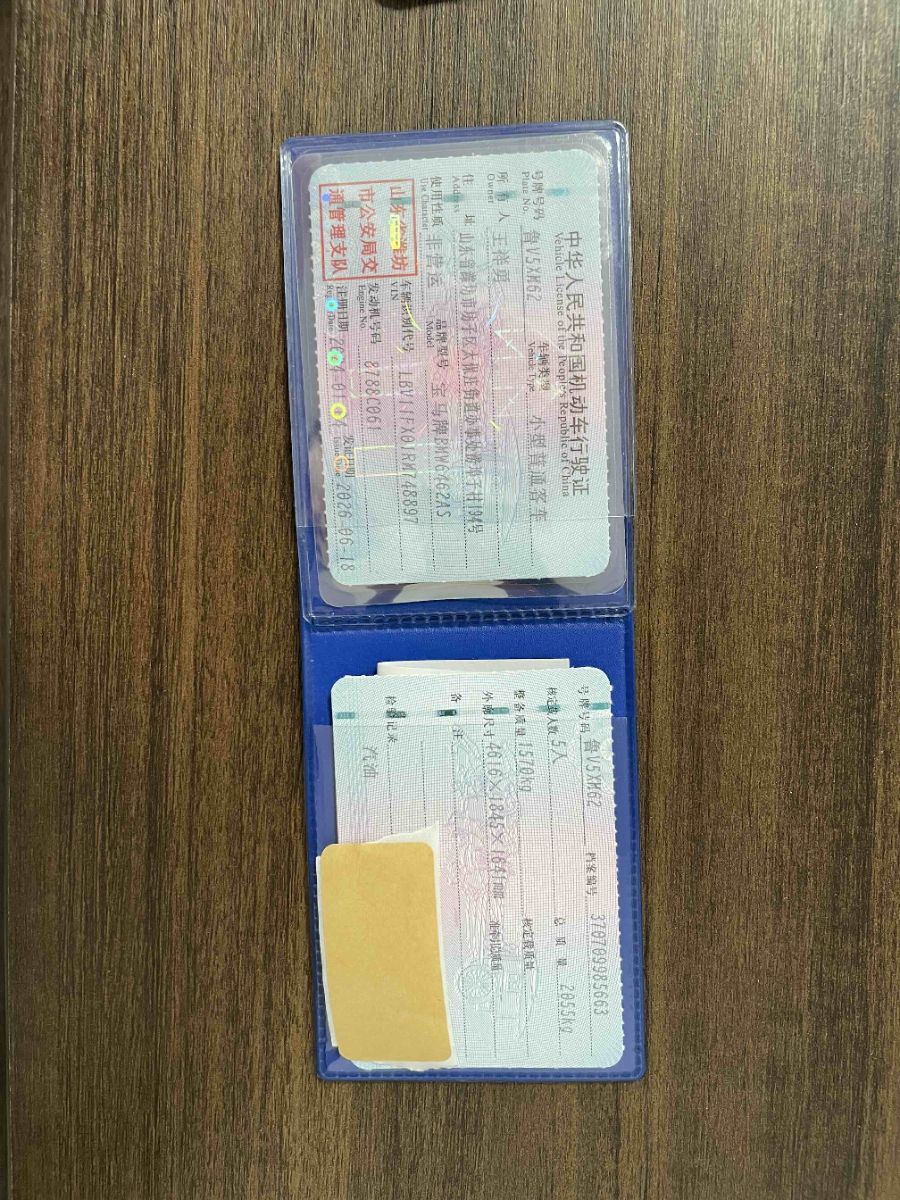 中华人民共和国机动车行驶证
Vehicle License of the People's Republic of China
号牌号码 鲁V5XM62 车辆类型 小型普通客车
Plate No. Vehicle Type
所有人 王祥勇
Owner
住址 山东省潍坊市坊子区
Address
使用性质 非营运 品牌型号 宝马牌BMW6462AS
Use Character Model
山东省潍坊
市公安局交
通管理支队
车辆识别代号 LBV11FX01RM748897
VIN
发动机号码 8788C061
Engine No.
注册日期 发证日期 2026-06-18
号牌号码 鲁V5XM62 档案编号 370709985663
核定载人数 5人 总质量 2055kg
整备质量 1570kg 核定载质量
外廓尺寸 4616×1845×1641mm 准牵引总质量
备注
检验记录 汽油